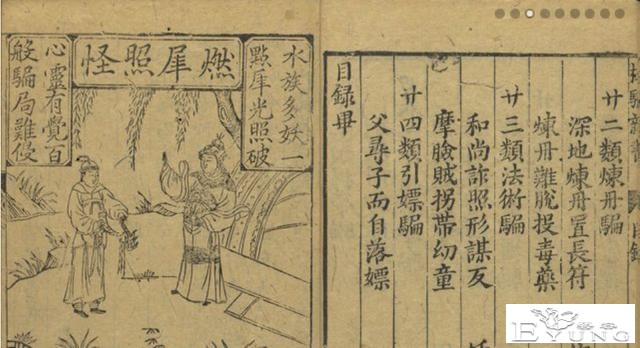 廿二類煉丹騙
深地煉丹置長符
煉丹難脫投毒藥
廿三類法術騙
和尚詐照形謀反
摩臉賊拐帶幼童
廿四類引嫖騙
父尋子而自落嫖
目錄畢
水族多妖一
點犀光照破
燃犀照怪
心靈有覺百
般騙局難侵
EYUNG